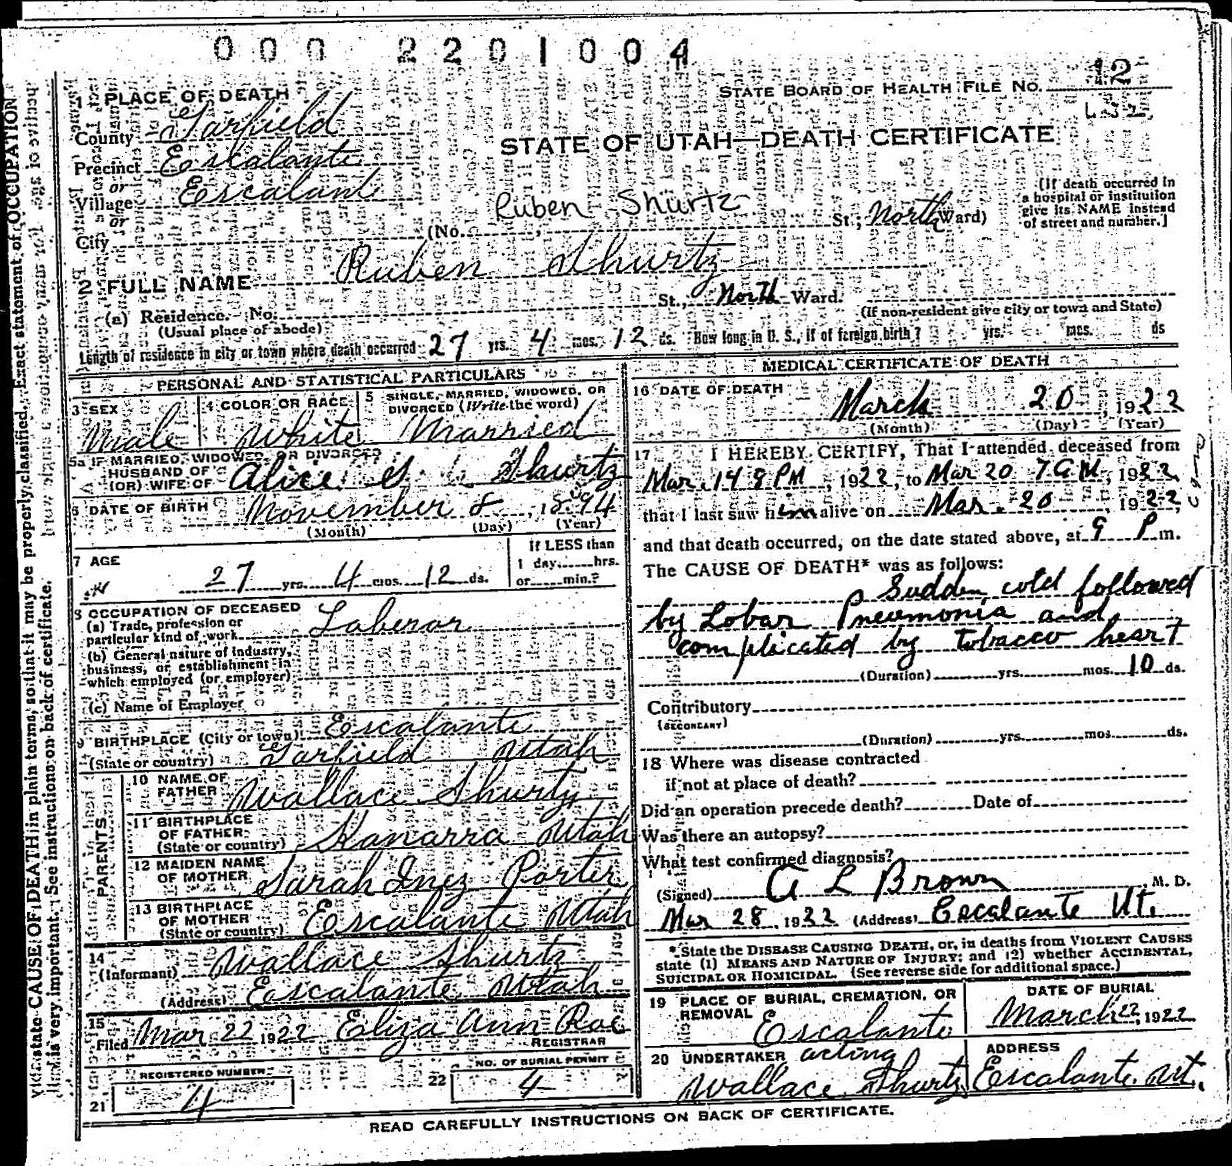 000 2201004
PLACE OF DEATH
STATE BOARD OF HEALTH FILE NO. 12
County Garfield
STATE OF UTAH—DEATH CERTIFICATE
Precinct Escalante
or
Village Escalante
or
City
(If death occurred in a hospital or institution give its NAME instead of street and number.)
Ruben Shurtz
(No. St., North Ward)
2 FULL NAME Ruben Shurtz
(a) Residence. No. St., North Ward.
(Usual place of abode) (If non-resident give city or town and State)
Length of residence in city or town where death occurred 27 yrs. 4 mos. 12 ds. How long in U. S., if of foreign birth? yrs. mos. ds
PERSONAL AND STATISTICAL PARTICULARS
3 SEX Male
4 COLOR OR RACE White
5 SINGLE, MARRIED, WIDOWED, OR DIVORCED (Write the word) Married
5a IF MARRIED, WIDOWED, OR DIVORCED
HUSBAND OF
(OR) WIFE OF Alice S. Shurtz
6 DATE OF BIRTH November 8 1894
(Month) (Day) (Year)
7 AGE
27 yrs. 4 mos. 12 ds.
If LESS than
1 day, hrs.
or min.?
8 OCCUPATION OF DECEASED
(a) Trade, profession or
particular kind of work Laberar
(b) General nature of industry,
business, or establishment in
which employed (or employer)
(c) Name of Employer
9 BIRTHPLACE (City or town) Escalante
(State or country) Garfield Utah
PARENTS
10 NAME OF
FATHER Wallace Shurtz
11 BIRTHPLACE
OF FATHER
(State or country) Kanarra Utah
12 MAIDEN NAME
OF MOTHER Sarah Inez Porter
13 BIRTHPLACE
OF MOTHER
(State or country) Escalante Utah
14
(Informant) Wallace Shurtz
(Address) Escalante Utah
15
Filed Mar 22 1922 Eliza Ann Roe
REGISTRAR
REGISTERED NUMBER
21 4
NO. OF BURIAL PERMIT
22 4
MEDICAL CERTIFICATE OF DEATH
16 DATE OF DEATH
March 20 1922
(Month) (Day) (Year)
17 I HEREBY CERTIFY, That I attended deceased from
Mar. 14 8 PM, 1922, to Mar 20 7 AM, 1922
that I last saw him alive on Mar. 20 1922
and that death occurred, on the date stated above, at 9 P m.
The CAUSE OF DEATH* was as follows:
Sudden cold followed
by Lobar Pneumonia and
complicated by tobacco heart
(Duration) yrs. mos. 10 ds.
Contributory
(SECONDARY)
(Duration) yrs. mos ds.
18 Where was disease contracted
if not at place of death?
Did an operation precede death? Date of
Was there an autopsy?
What test confirmed diagnosis?
(Signed) A L Brown M. D.
Mar 28 1922 (Address) Escalante Ut.
*State the DISEASE CAUSING DEATH, or, in deaths from VIOLENT CAUSES
state (1) MEANS AND NATURE OF INJURY; and (2) whether ACCIDENTAL,
SUICIDAL OR HOMICIDAL. (See reverse side for additional space.)
19 PLACE OF BURIAL, CREMATION, OR
REMOVAL Escalante
DATE OF BURIAL
March 22, 1922
20 UNDERTAKER acting
Wallace Shurtz
ADDRESS
Escalante Ut.
READ CAREFULLY INSTRUCTIONS ON BACK OF CERTIFICATE.
state CAUSE OF DEATH in plain terms, so that it may be properly classified. Exact statement of OCCUPATION
is very important. See instructions on back of certificate.